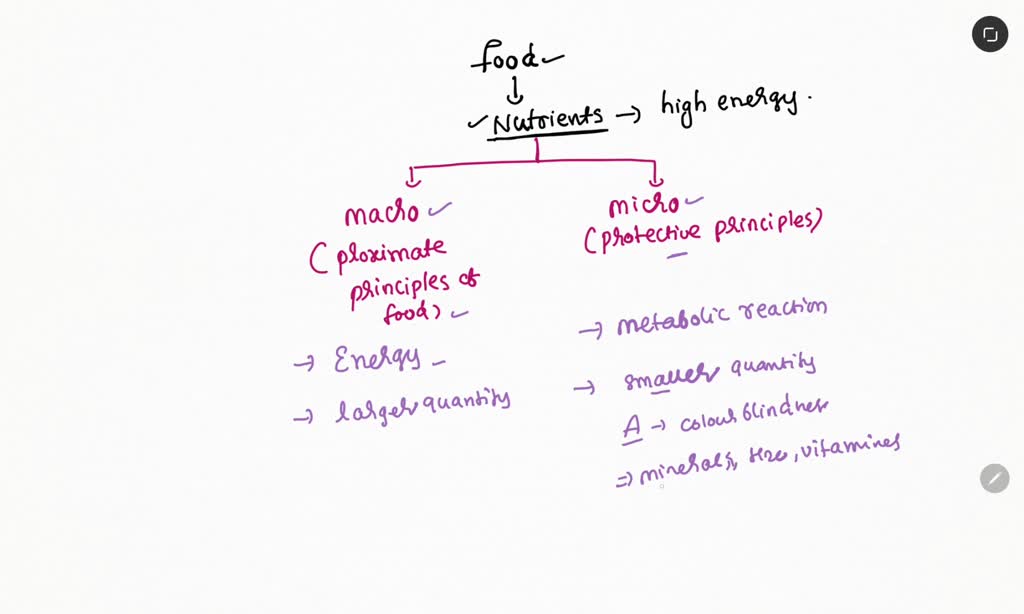 food
Nutrients → high energy.
macro
(proximate
principles of
food)
→ Energy
→ larger quantity
micro
(protective principles)
→ metabolic reaction
→ smaller quantity
A → colour blindness
⇒ minerals, H2O, vitamines